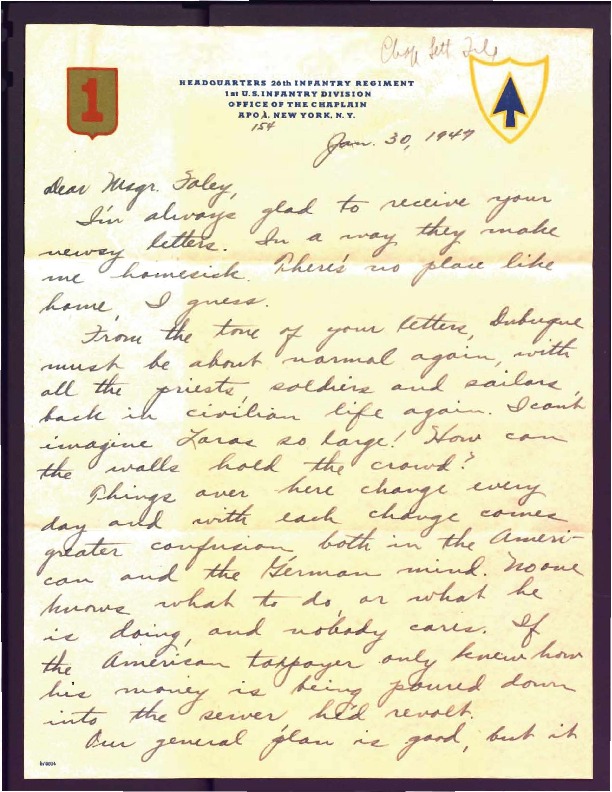 Chap Lett File
1
HEADQUARTERS 26th INFANTRY REGIMENT
1st U.S. INFANTRY DIVISION
OFFICE OF THE CHAPLAIN
APO 1, NEW YORK, N.Y.
154
Jan. 30, 1947
Dear Msgr. Foley,
I'm always glad to receive your
newsy letters. In a way they make
me homesick. There's no place like
home, I guess.
From the tone of your letters, Dubuque
must be about normal again, with
all the priests, soldiers and sailors
back in civilian life again. I can't
imagine Loras so large! How can
the walls hold the crowd?
Things over here change every
day and with each change comes
greater confusion both in the Ameri-
can and the German mind. No one
knows what to do, or what he
is doing, and nobody cares. If
the American taxpayer only knew how
his money is being poured down
into the sewer he'd revolt.
Our general plan is good, but it